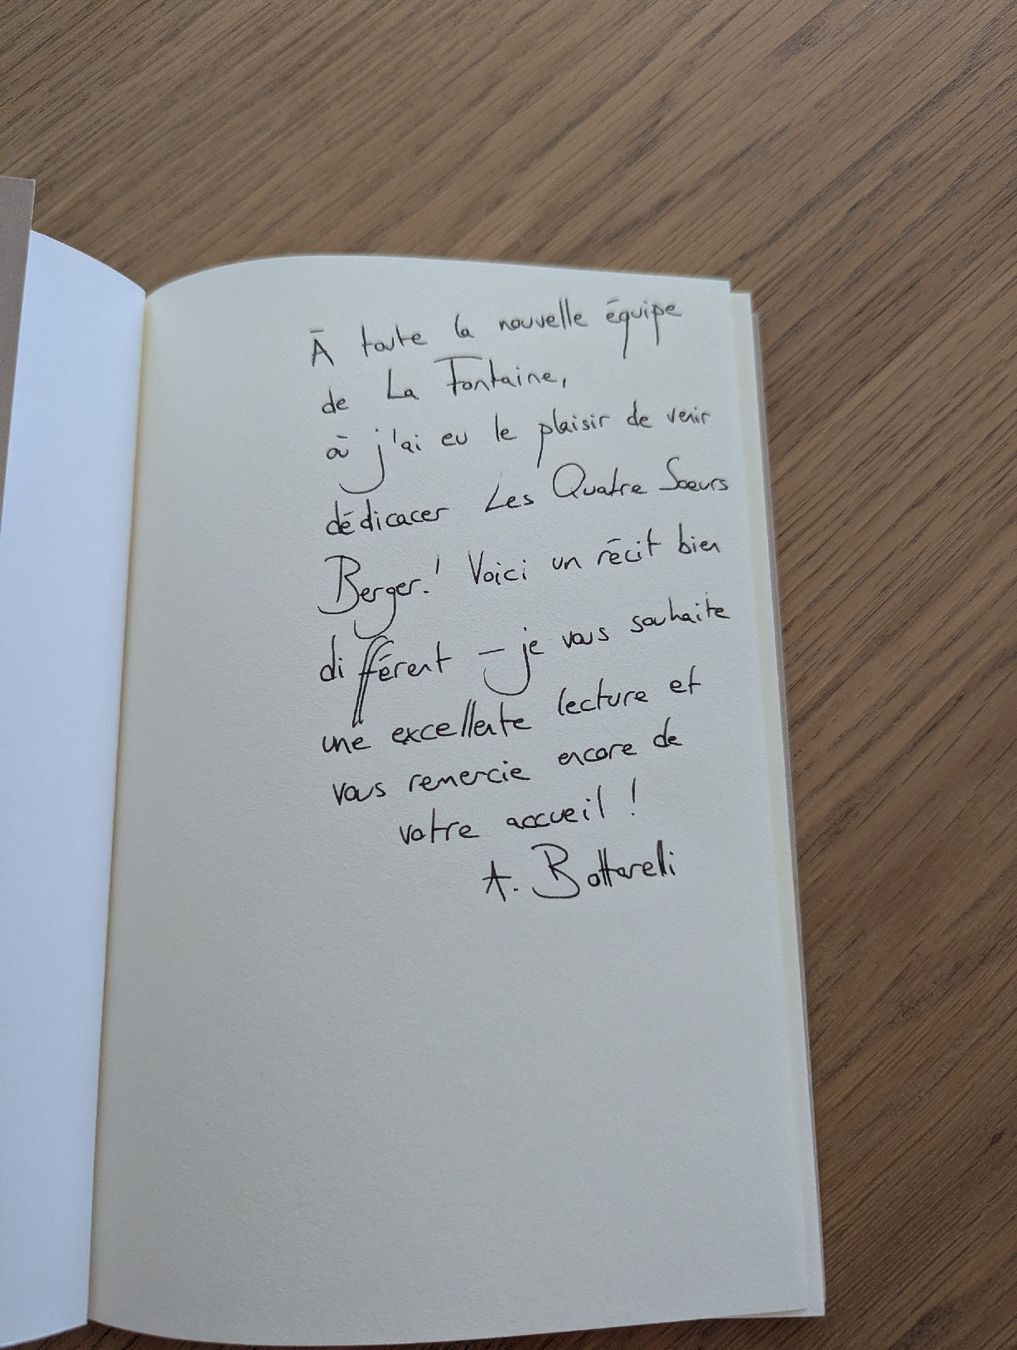 À toute la nouvelle équipe
de La Fontaine,
où j'ai eu le plaisir de venir
dédicacer Les Quatre Sœurs
Berger ! Voici un récit bien
différent – je vous souhaite
une excellente lecture et
vous remercie encore de
votre accueil !
A. Bottareli